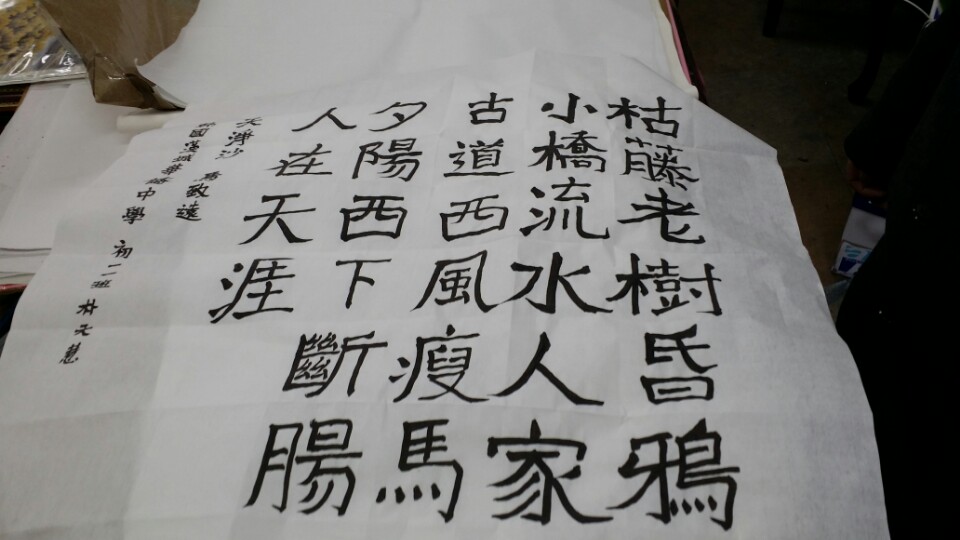 枯藤老樹昏鴉
小橋流水人家
古道西風瘦馬
夕陽西下斷腸
人在天涯
天淨沙 馬致遠
韓國漢城華僑中學 初一 林元慧